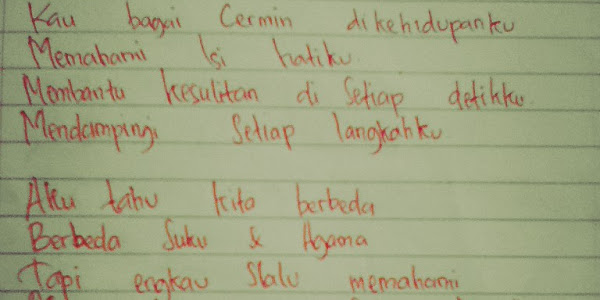 Kau bagai Cermin dikehidupanku
Memahami Isi hatiku
Membantu kesulitan di setiap detikku
Mendampingi Setiap langkahku
Aku tahu kita berbeda
Berbeda Suku & Agama
Tapi engkau Slalu memahami